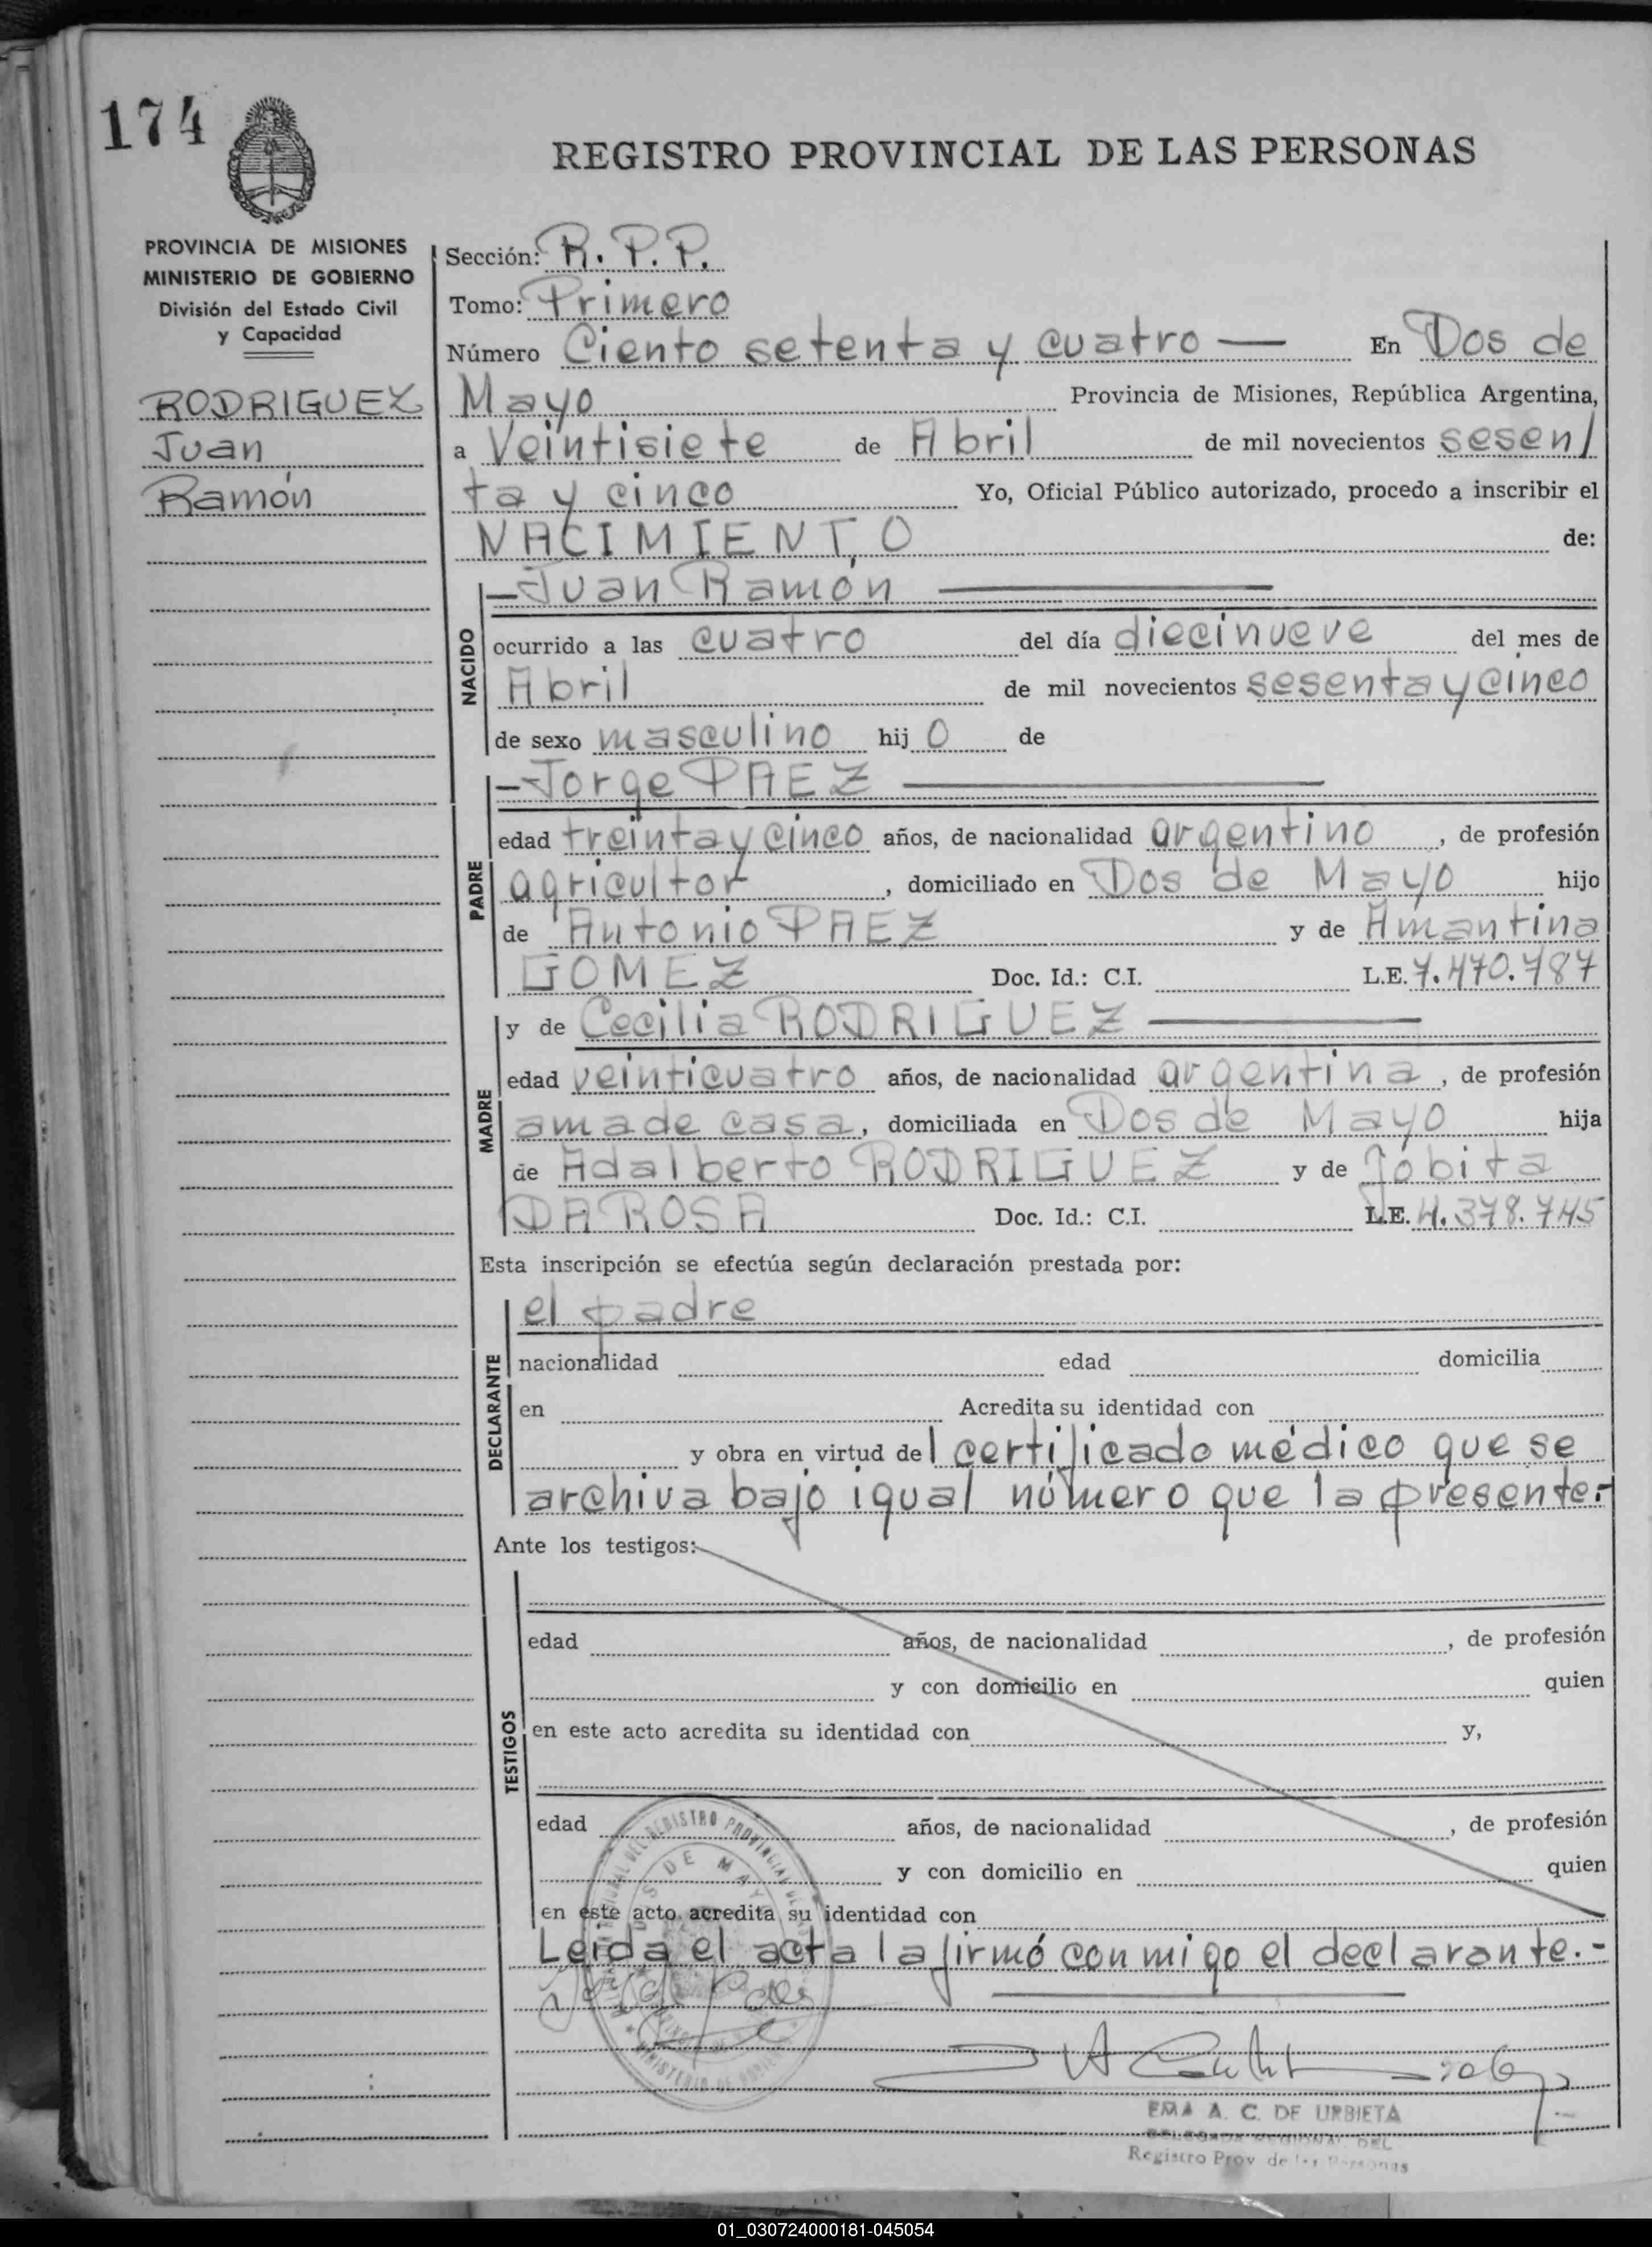 174
REGISTRO PROVINCIAL DE LAS PERSONAS
PROVINCIA DE MISIONES
MINISTERIO DE GOBIERNO
División del Estado Civil
y Capacidad
RODRIGUEZ
Juan
Ramón
Sección: R. P. P.
Tomo: Primero
Número Ciento setenta y cuatro — En Dos de
Mayo Provincia de Misiones, República Argentina,
a Veintisiete de Abril de mil novecientos sesen/
ta y cinco Yo, Oficial Público autorizado, procedo a inscribir el
NACIMIENTO de:
NACIDO
—Juan Ramón —
ocurrido a las cuatro del día diecinueve del mes de
Abril de mil novecientos sesenta y cinco
de sexo masculino hijo de
PADRE
—Jorge PAEZ —
edad treinta y cinco años, de nacionalidad argentino, de profesión
agricultor, domiciliado en Dos de Mayo hijo
de Antonio PAEZ y de Amantina
GOMEZ Doc. Id.: C.I. L.E. 7.470.787
MADRE
y de Cecilia RODRIGUEZ —
edad veinticuatro años, de nacionalidad argentina, de profesión
ama de casa, domiciliada en Dos de Mayo hija
de Adalberto RODRIGUEZ y de Jobita
DA ROSA Doc. Id.: C.I. L.E. 4.378.745
Esta inscripción se efectúa según declaración prestada por:
DECLARANTE
el padre
nacionalidad edad domicilia
en Acredita su identidad con
y obra en virtud del certificado médico que se
archiva bajo igual número que la presente.-
Ante los testigos:
TESTIGOS
edad años, de nacionalidad , de profesión
y con domicilio en quien
en este acto acredita su identidad con y,
edad años, de nacionalidad , de profesión
y con domicilio en quien
en este acto acredita su identidad con
Leida el acta la firmó conmigo el declarante.-
DOS DE MAYO
EMA A. C. DE URBIETA
DELEGADA REGIONAL DEL
Registro Prov de las Personas
01_030724000181-045054